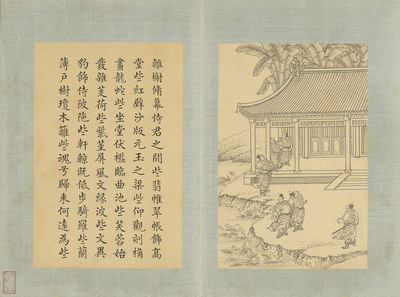 離榭脩幕侍君之閒些翡帷翠帳飾高
堂些紅壁沙版元玉之梁些仰觀刻桷
畫龍蛇些坐堂伏檻臨曲池些芙蓉始
發雜芰荷些紫莖屏風文緣波些文異
豹飾侍陂陁些軒輬既低步騎羅些蘭
薄戶樹瓊木籬些魂兮歸來何遠為些